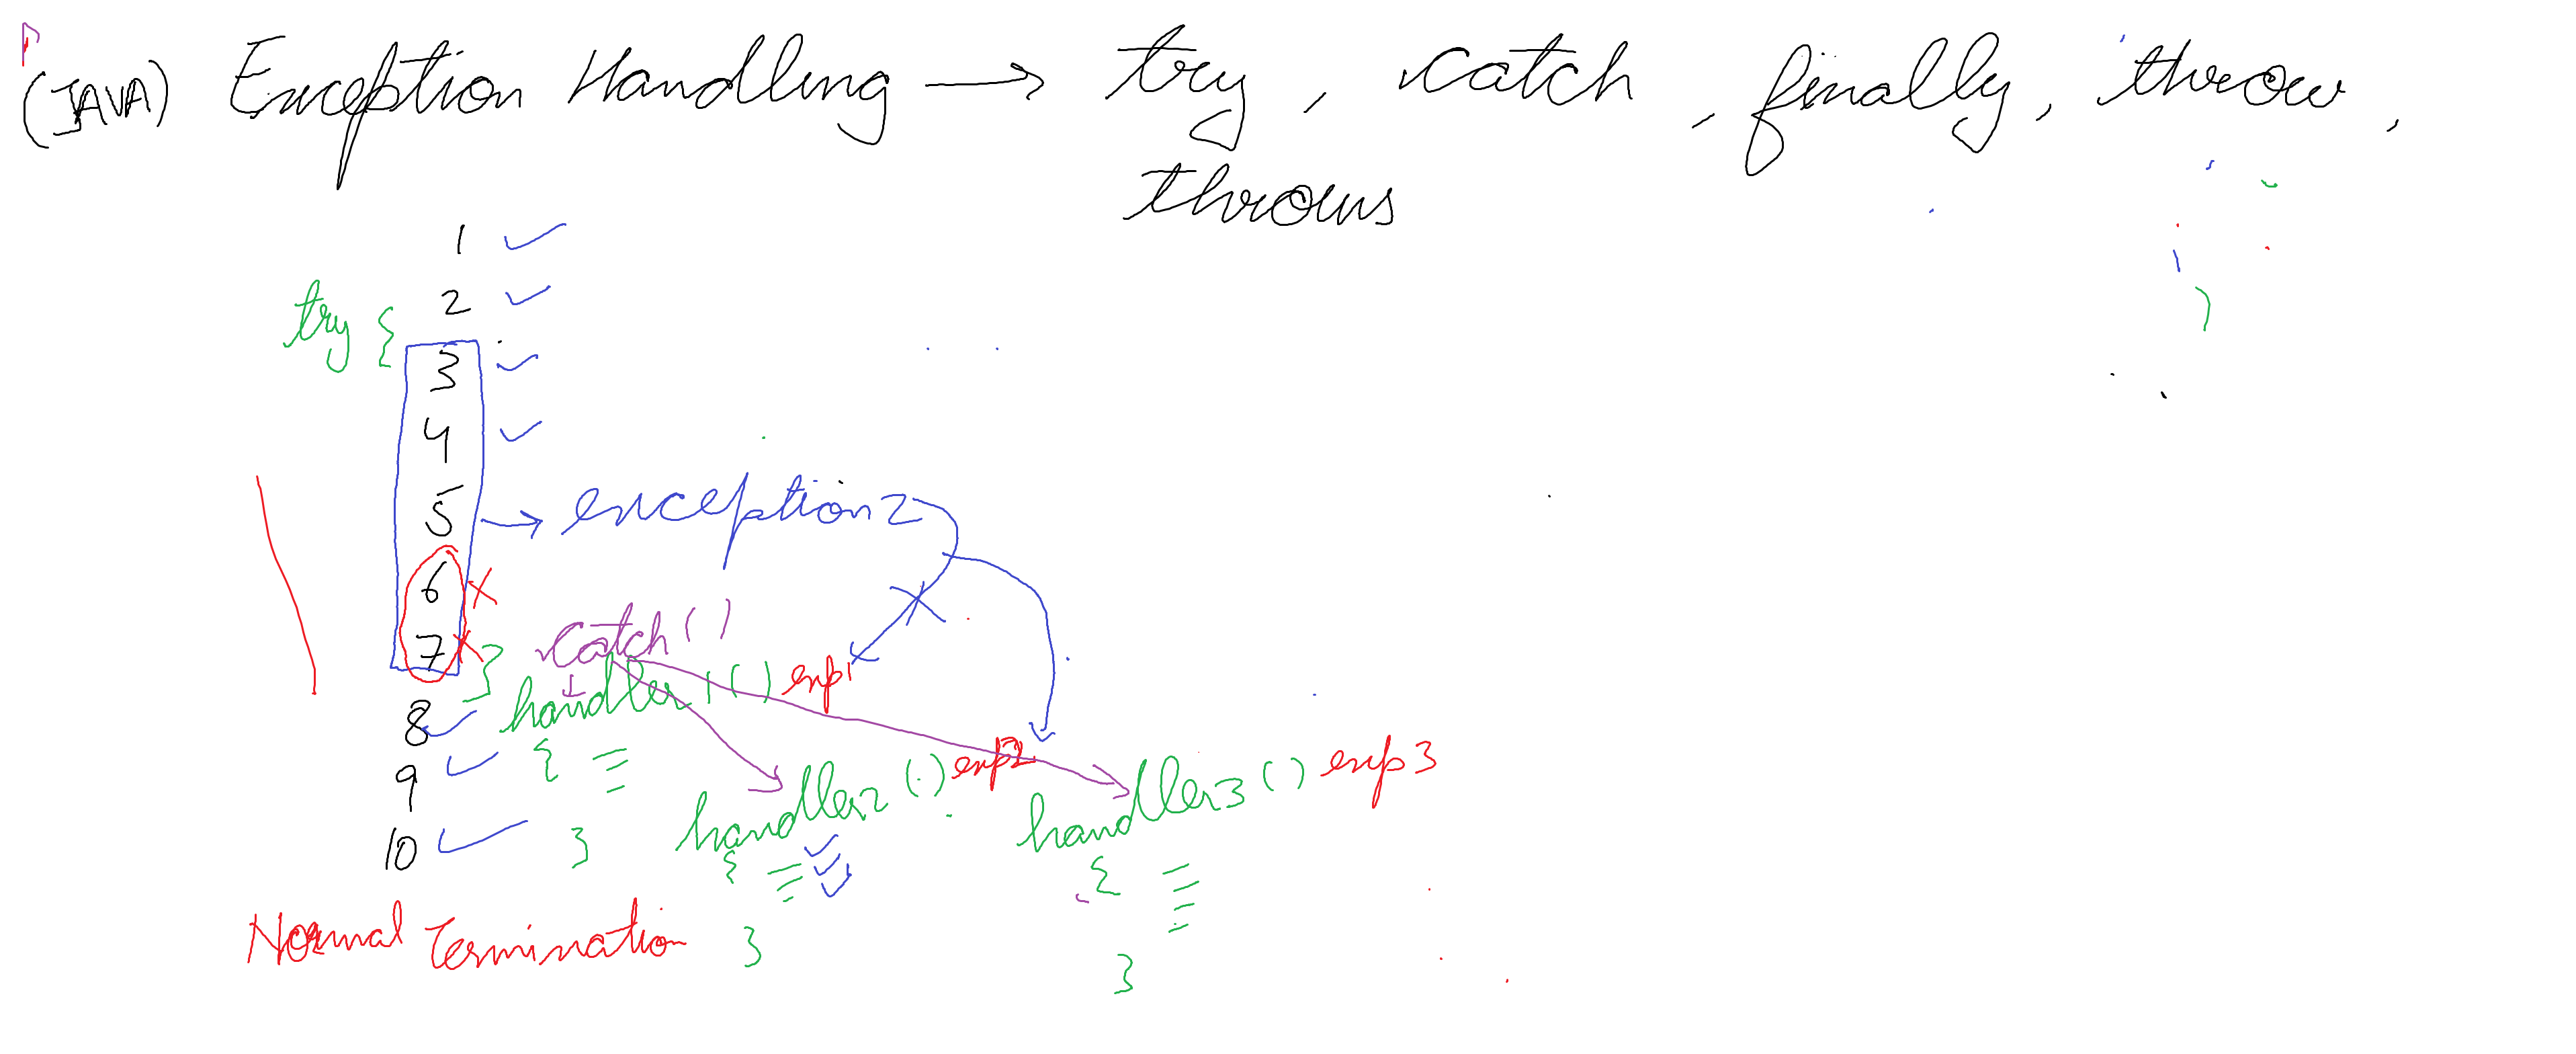 (JAVA) Exception Handling → try, catch, finally, throw,
throws
1 ✓
2 ✓
try {
3 ✓
4 ✓
5 → exception2
6 ×
7 × }
catch ( )
8 ✓ handler1 ( ) exp1
9 ✓ { 
10 ✓ }
handler2 ( ) exp2
{
}
handler3 ( ) exp3
{
}
Normal Termination